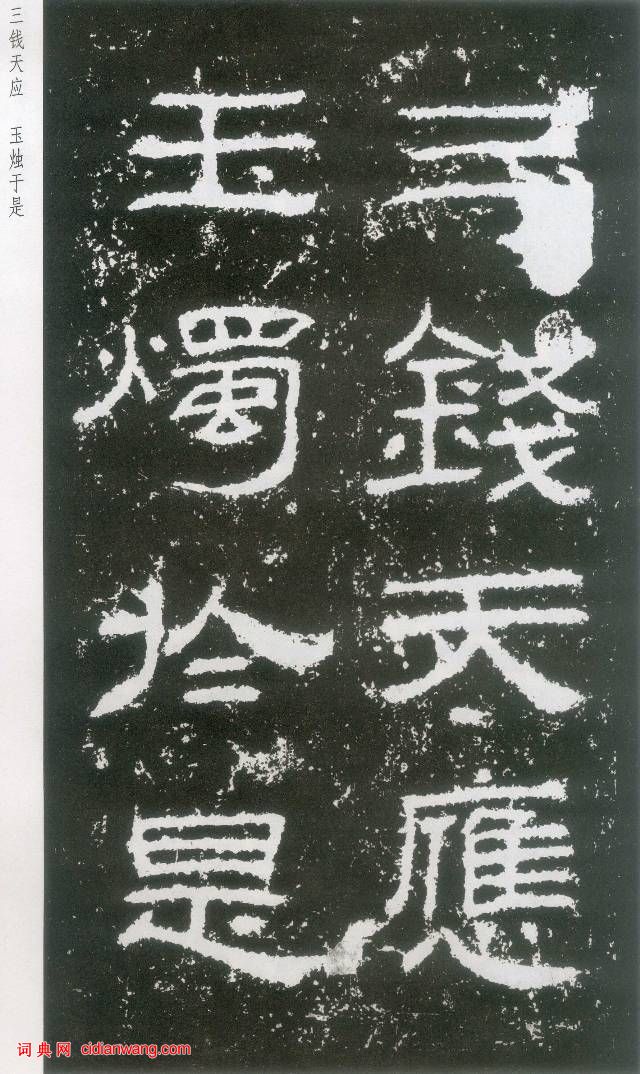 三钱天应　玉烛于是
三錢天應
玉燭於是
词典网 cidianwang.com